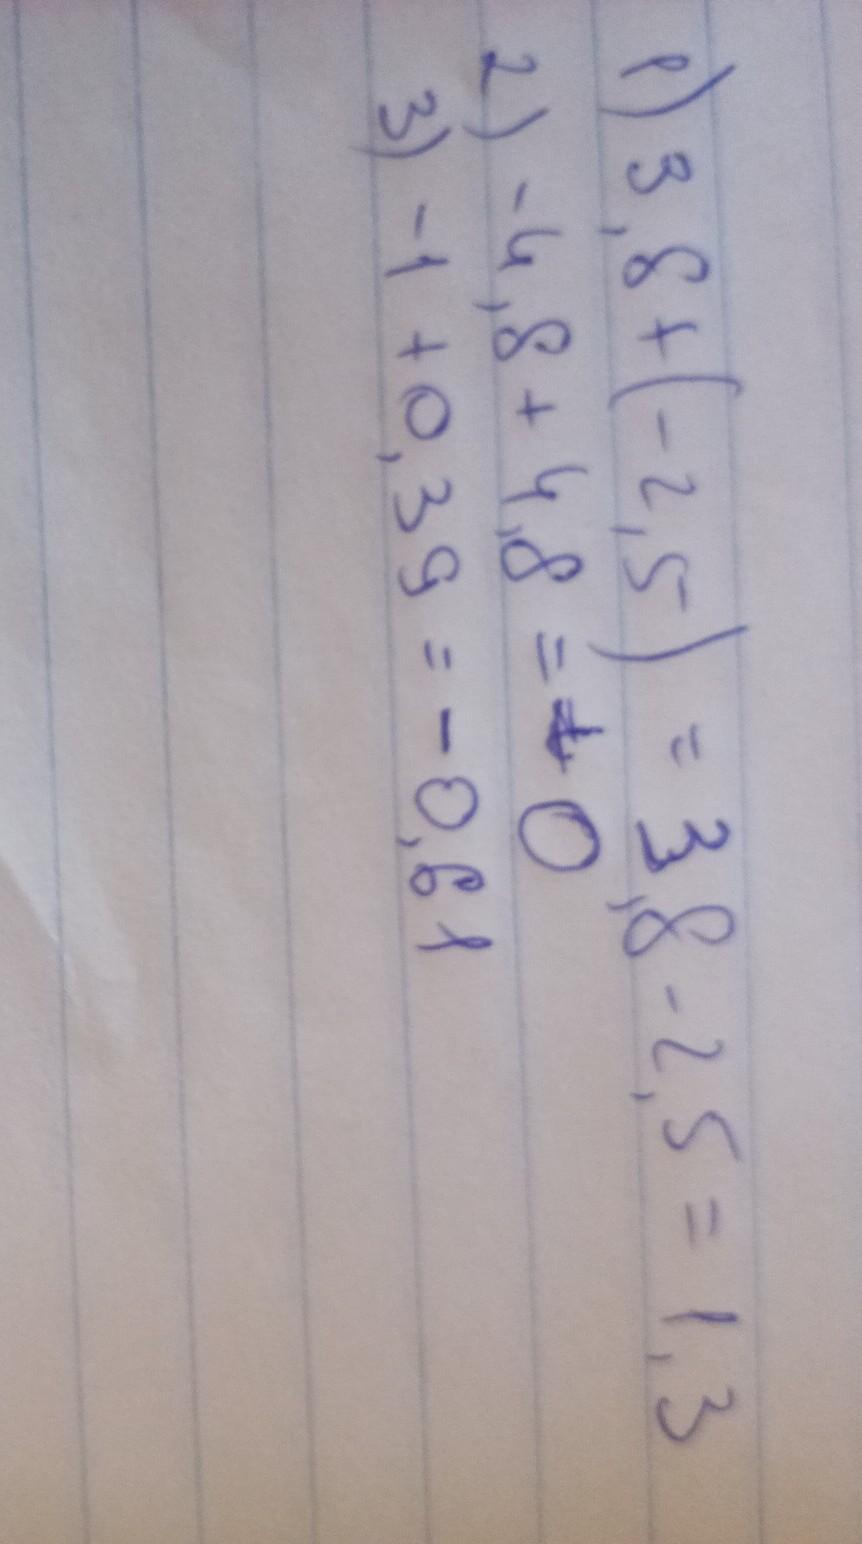 1) 3,8 + (-2,5) = 3,8 - 2,5 = 1,3
2) -4,8 + 4,8 = 0
3) -1 + 0,39 = -0,61